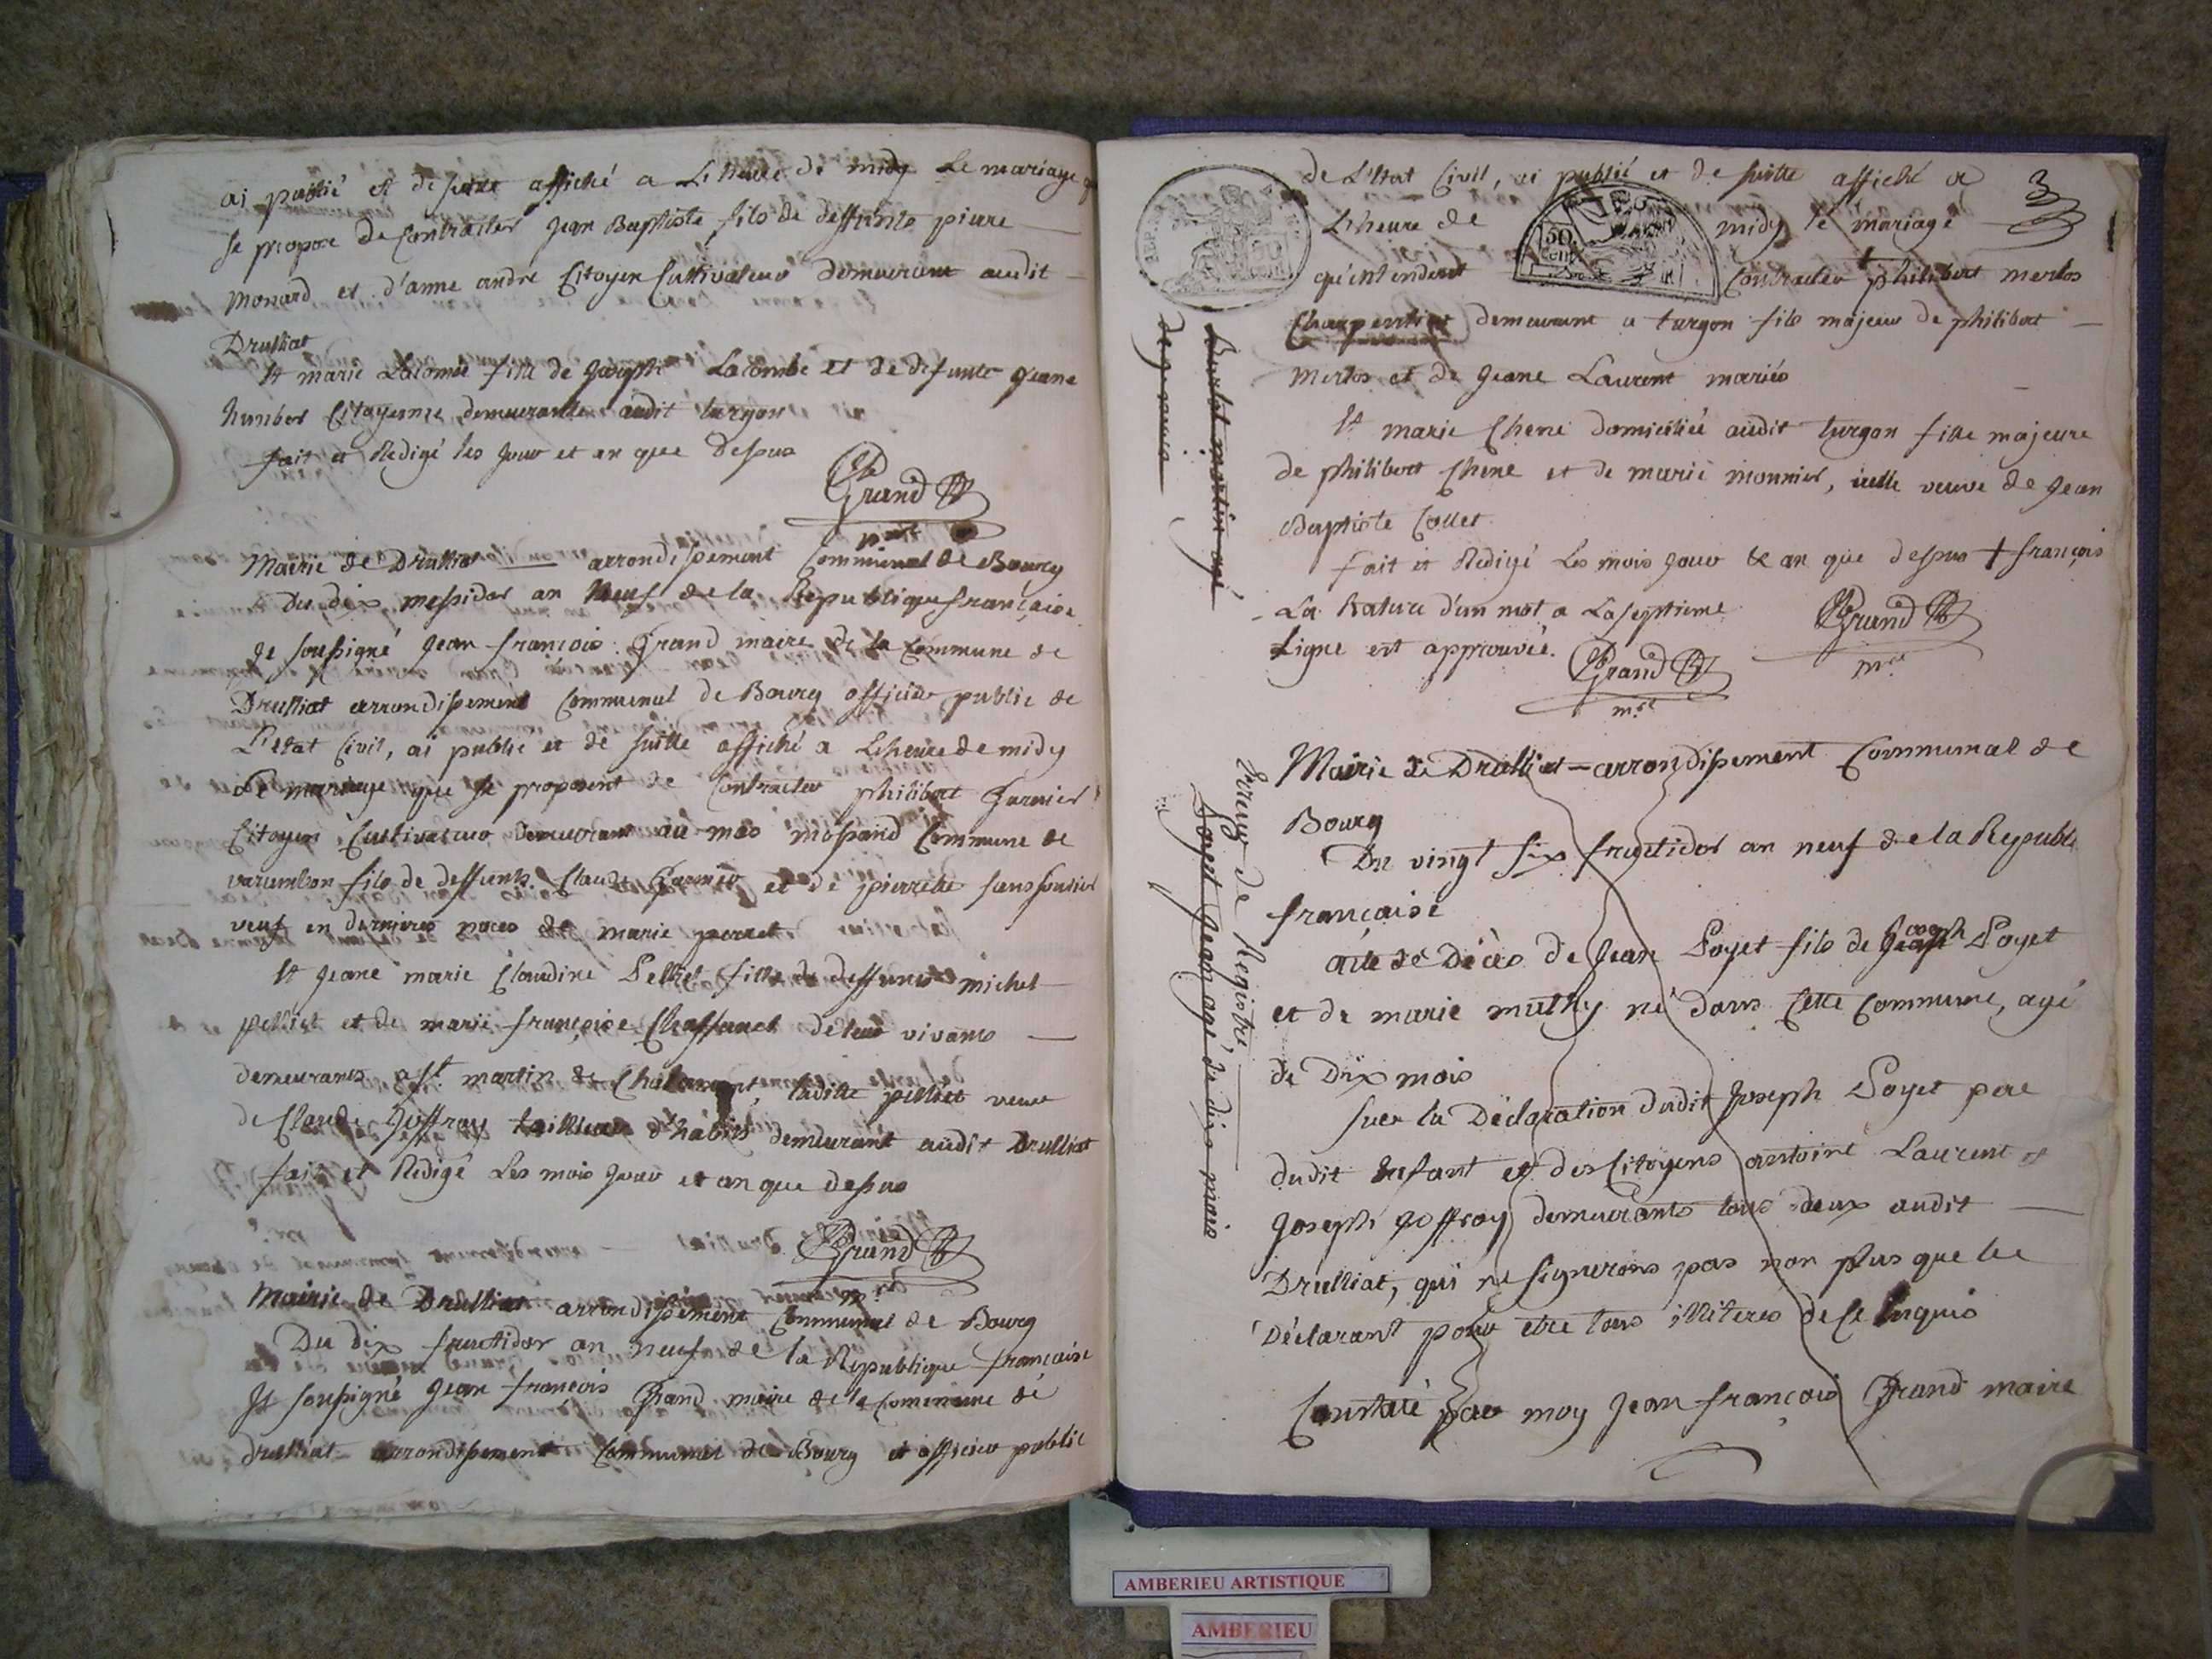 ai publié et de suitte affiché a L'heure de midy Le mariage q
se propose de Contracter Jean Baptiste fils de deffunts pierre
monard et d'anne andré Citoyen Cultivateur demeurant audit
Druilliat
Et marie Lacombe fille de Joseph Lacombe et de defunte Jeane
humber Citoyenne demeurante audit turgon
fait et Redigé les jour et an que dessus
Grand
mre
Mairie de Druilliat arrondissement Communal de Bourg
Du dix messidor an Neuf de la Republique française
Je soussigné Jean françois Grand maire de la Commune de
Druilliat arrondissement Communal de Bourg officier public de
L'etat Civil, ai publié et de suitte affiché a L'heure de midy
Le mariage que se proposent de Contracter philibert Garnier
Citoyen Cultivateur demeurant au mas Commune de
varambon fils de deffunts Claude Garnier et de pierrette
veuf en dernieres noces de marie perret
Et Jeane marie Claudine Pelliet fille de deffunts michel
pelliet et de marie françoise Chaffanel de leur vivants
demeurants a St. martin de Chalamont, ladite pelliet veuve
de Claude Joffray tailleur d'habits demeurant audit Druilliat
fait et Redigé Les mois jour et an que dessus
Grand
mre
Mairie de Druilliat arrondissement Communal de Bourg
Du dix fructidor an neuf de la Republique française
Je soussigné Jean françois Grand maire de la Commune de
druilliat arrondissement Communal de Bourg et officier public
3
de L'Etat Civil, ai publié et de suitte affiché a
L'heure de midy le mariage
REP.
50.
qu'entendent Contracter + philibert merlos
Charpentier demeurant a turgon fils majeur de philibert
Merlos et de Jeane Laurent mariés
Et marie Chene domiciliée audit turgon fille majeure
de philibert Chene et de marie monnier, icelle veuve de Jean
Baptiste Collet
fait et Redigé Les mois jour & an que dessus + françois
La Rature d'un mot a La septieme
Ligne est approuvée.
Grand
mre
Grand
mre
Burtal martin agé
de
Mairie de Druilliat - arrondissement Communal de
Bourg
Du vingt six fructidor an neuf de la Republ
française
acte de Décès de Jean Poyet fils de Joseph Poyet
et de marie mathy né dans Cette Commune, agé
de Dix mois
Sur la Déclaration dudit Joseph Poyet pere
dudit Enfant et des Citoyens antoine Laurent et
Joseph Joffray demeurants tous deux audit
Druilliat, qui ne signerons pas non plus que le
Déclarant pour etre tous illiterés de Ce Enquis
Constaté par moy Jean françois Grand maire
Erreur de Registre
Poyet Jean agé de dix mois
AMBERIEU ARTISTIQUE
AMBERIEU